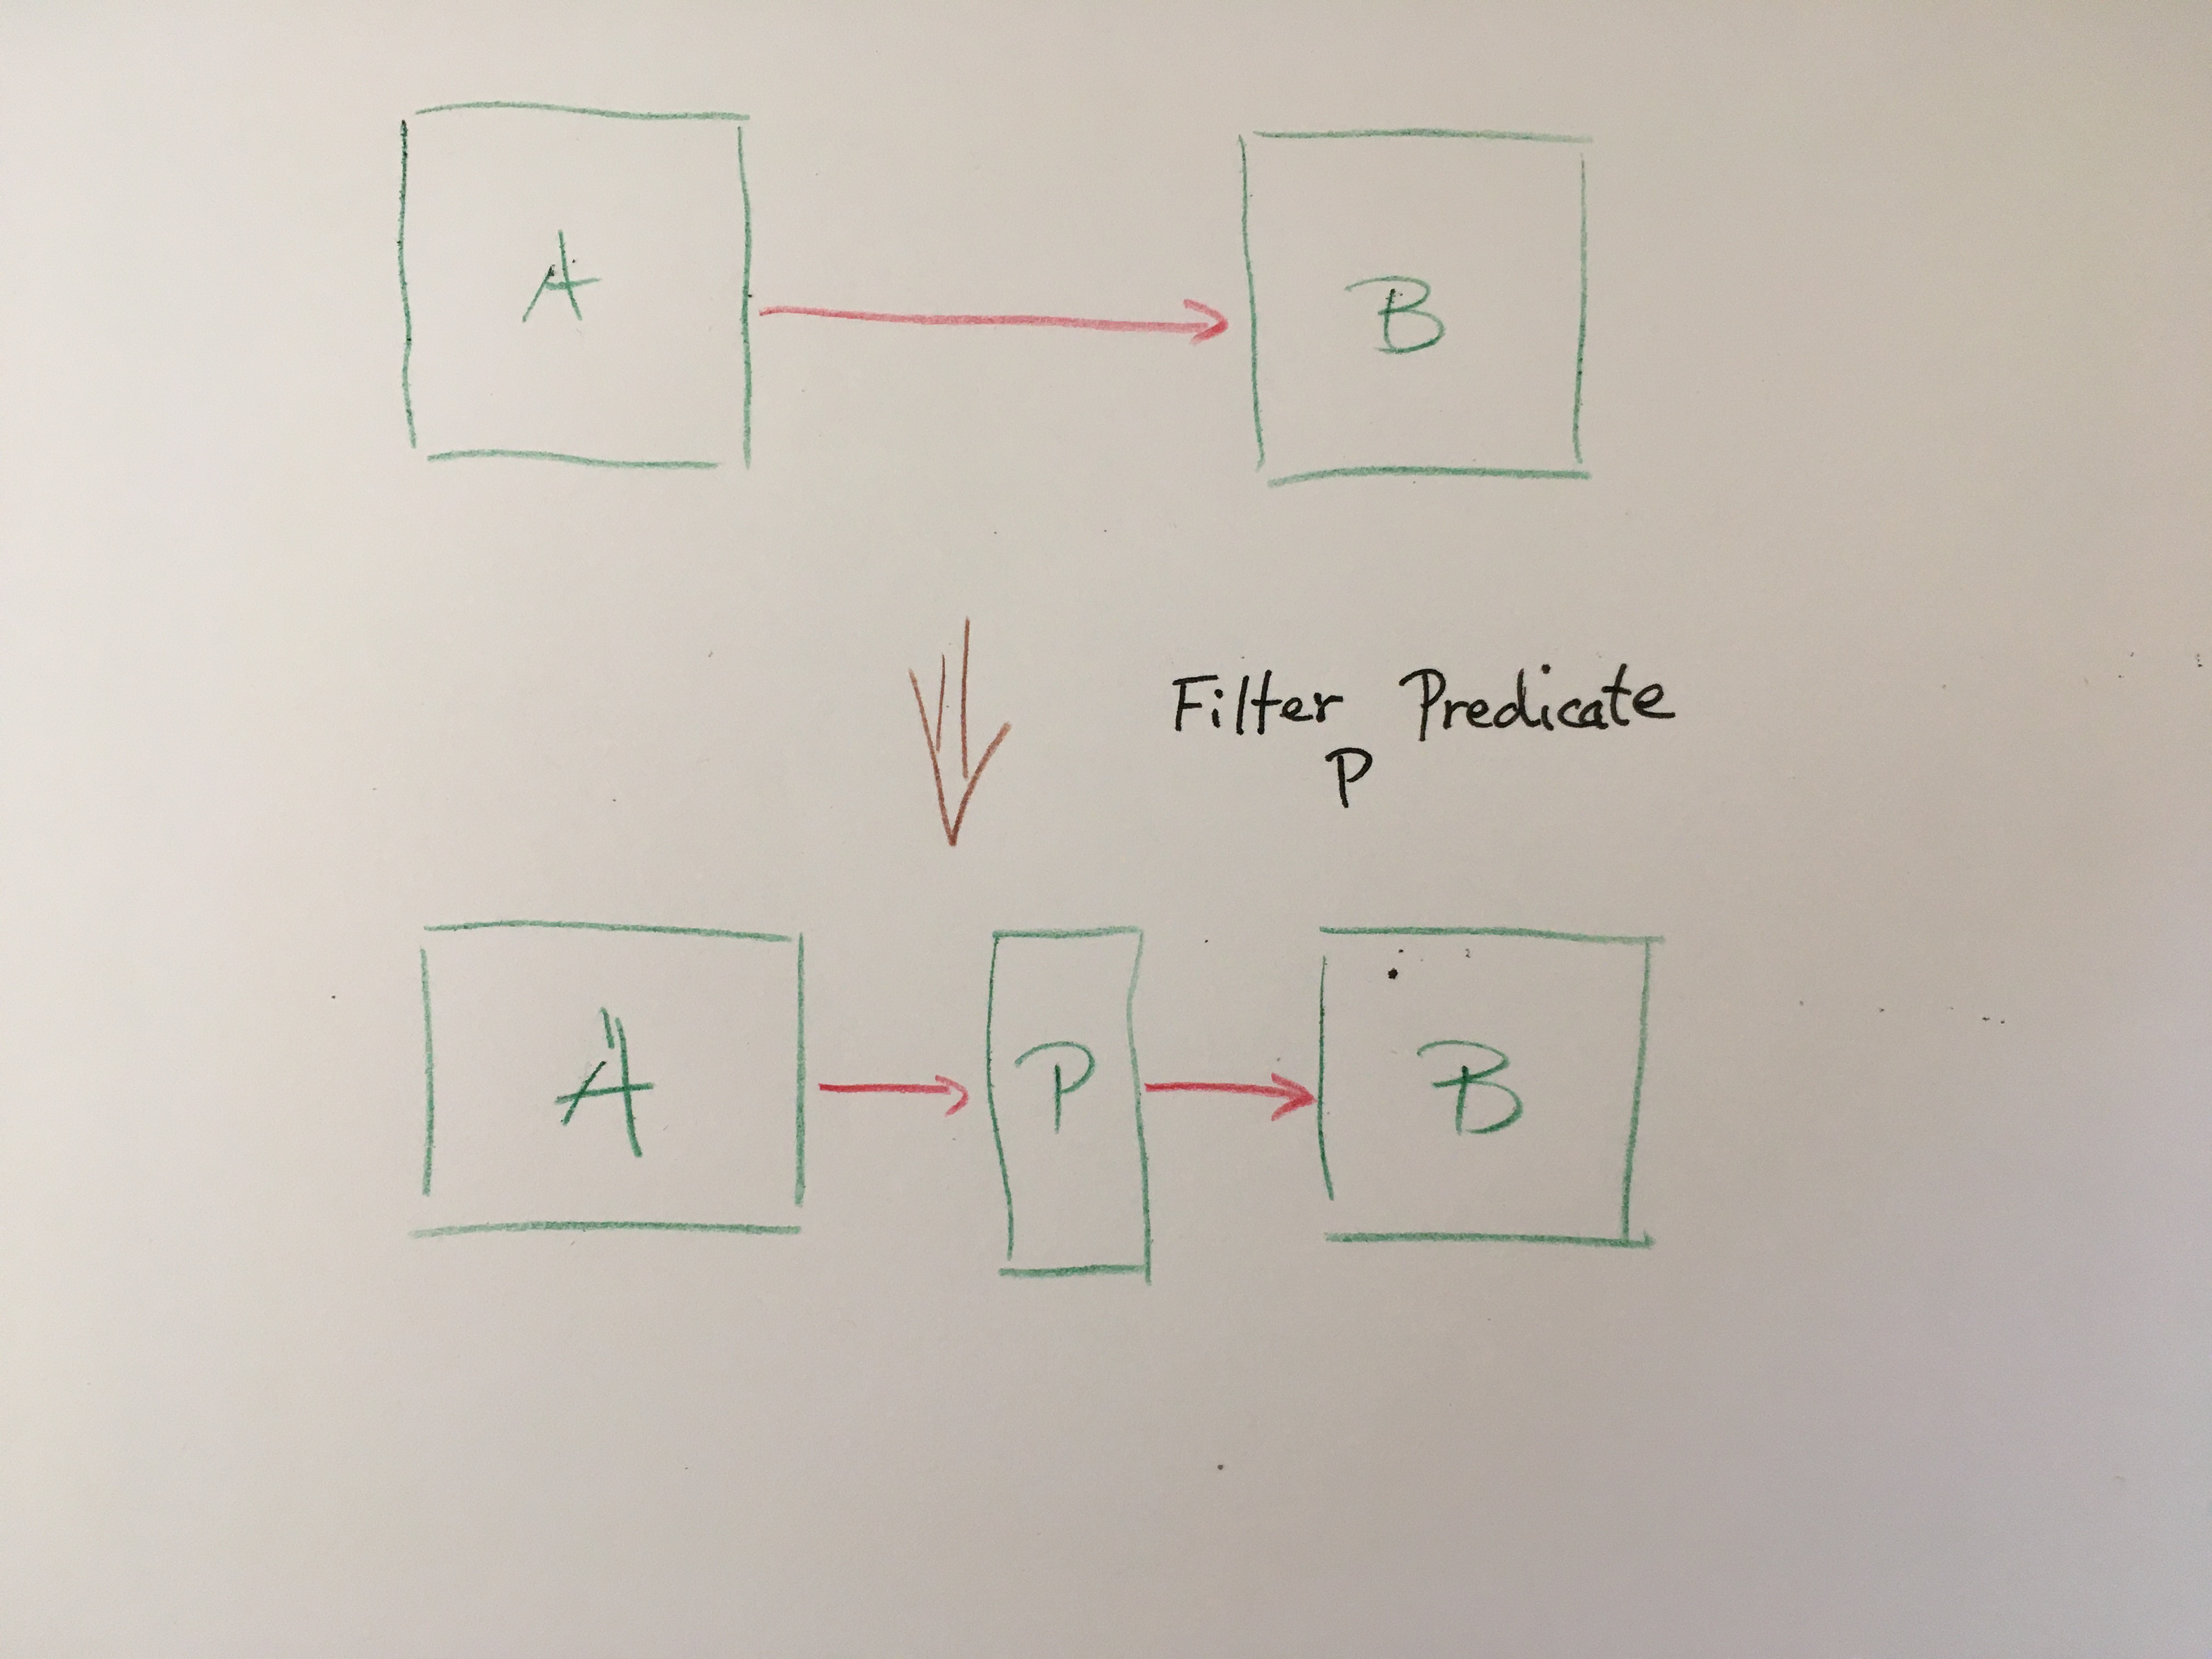 A
B
Filter Predicate
P
A
P
B